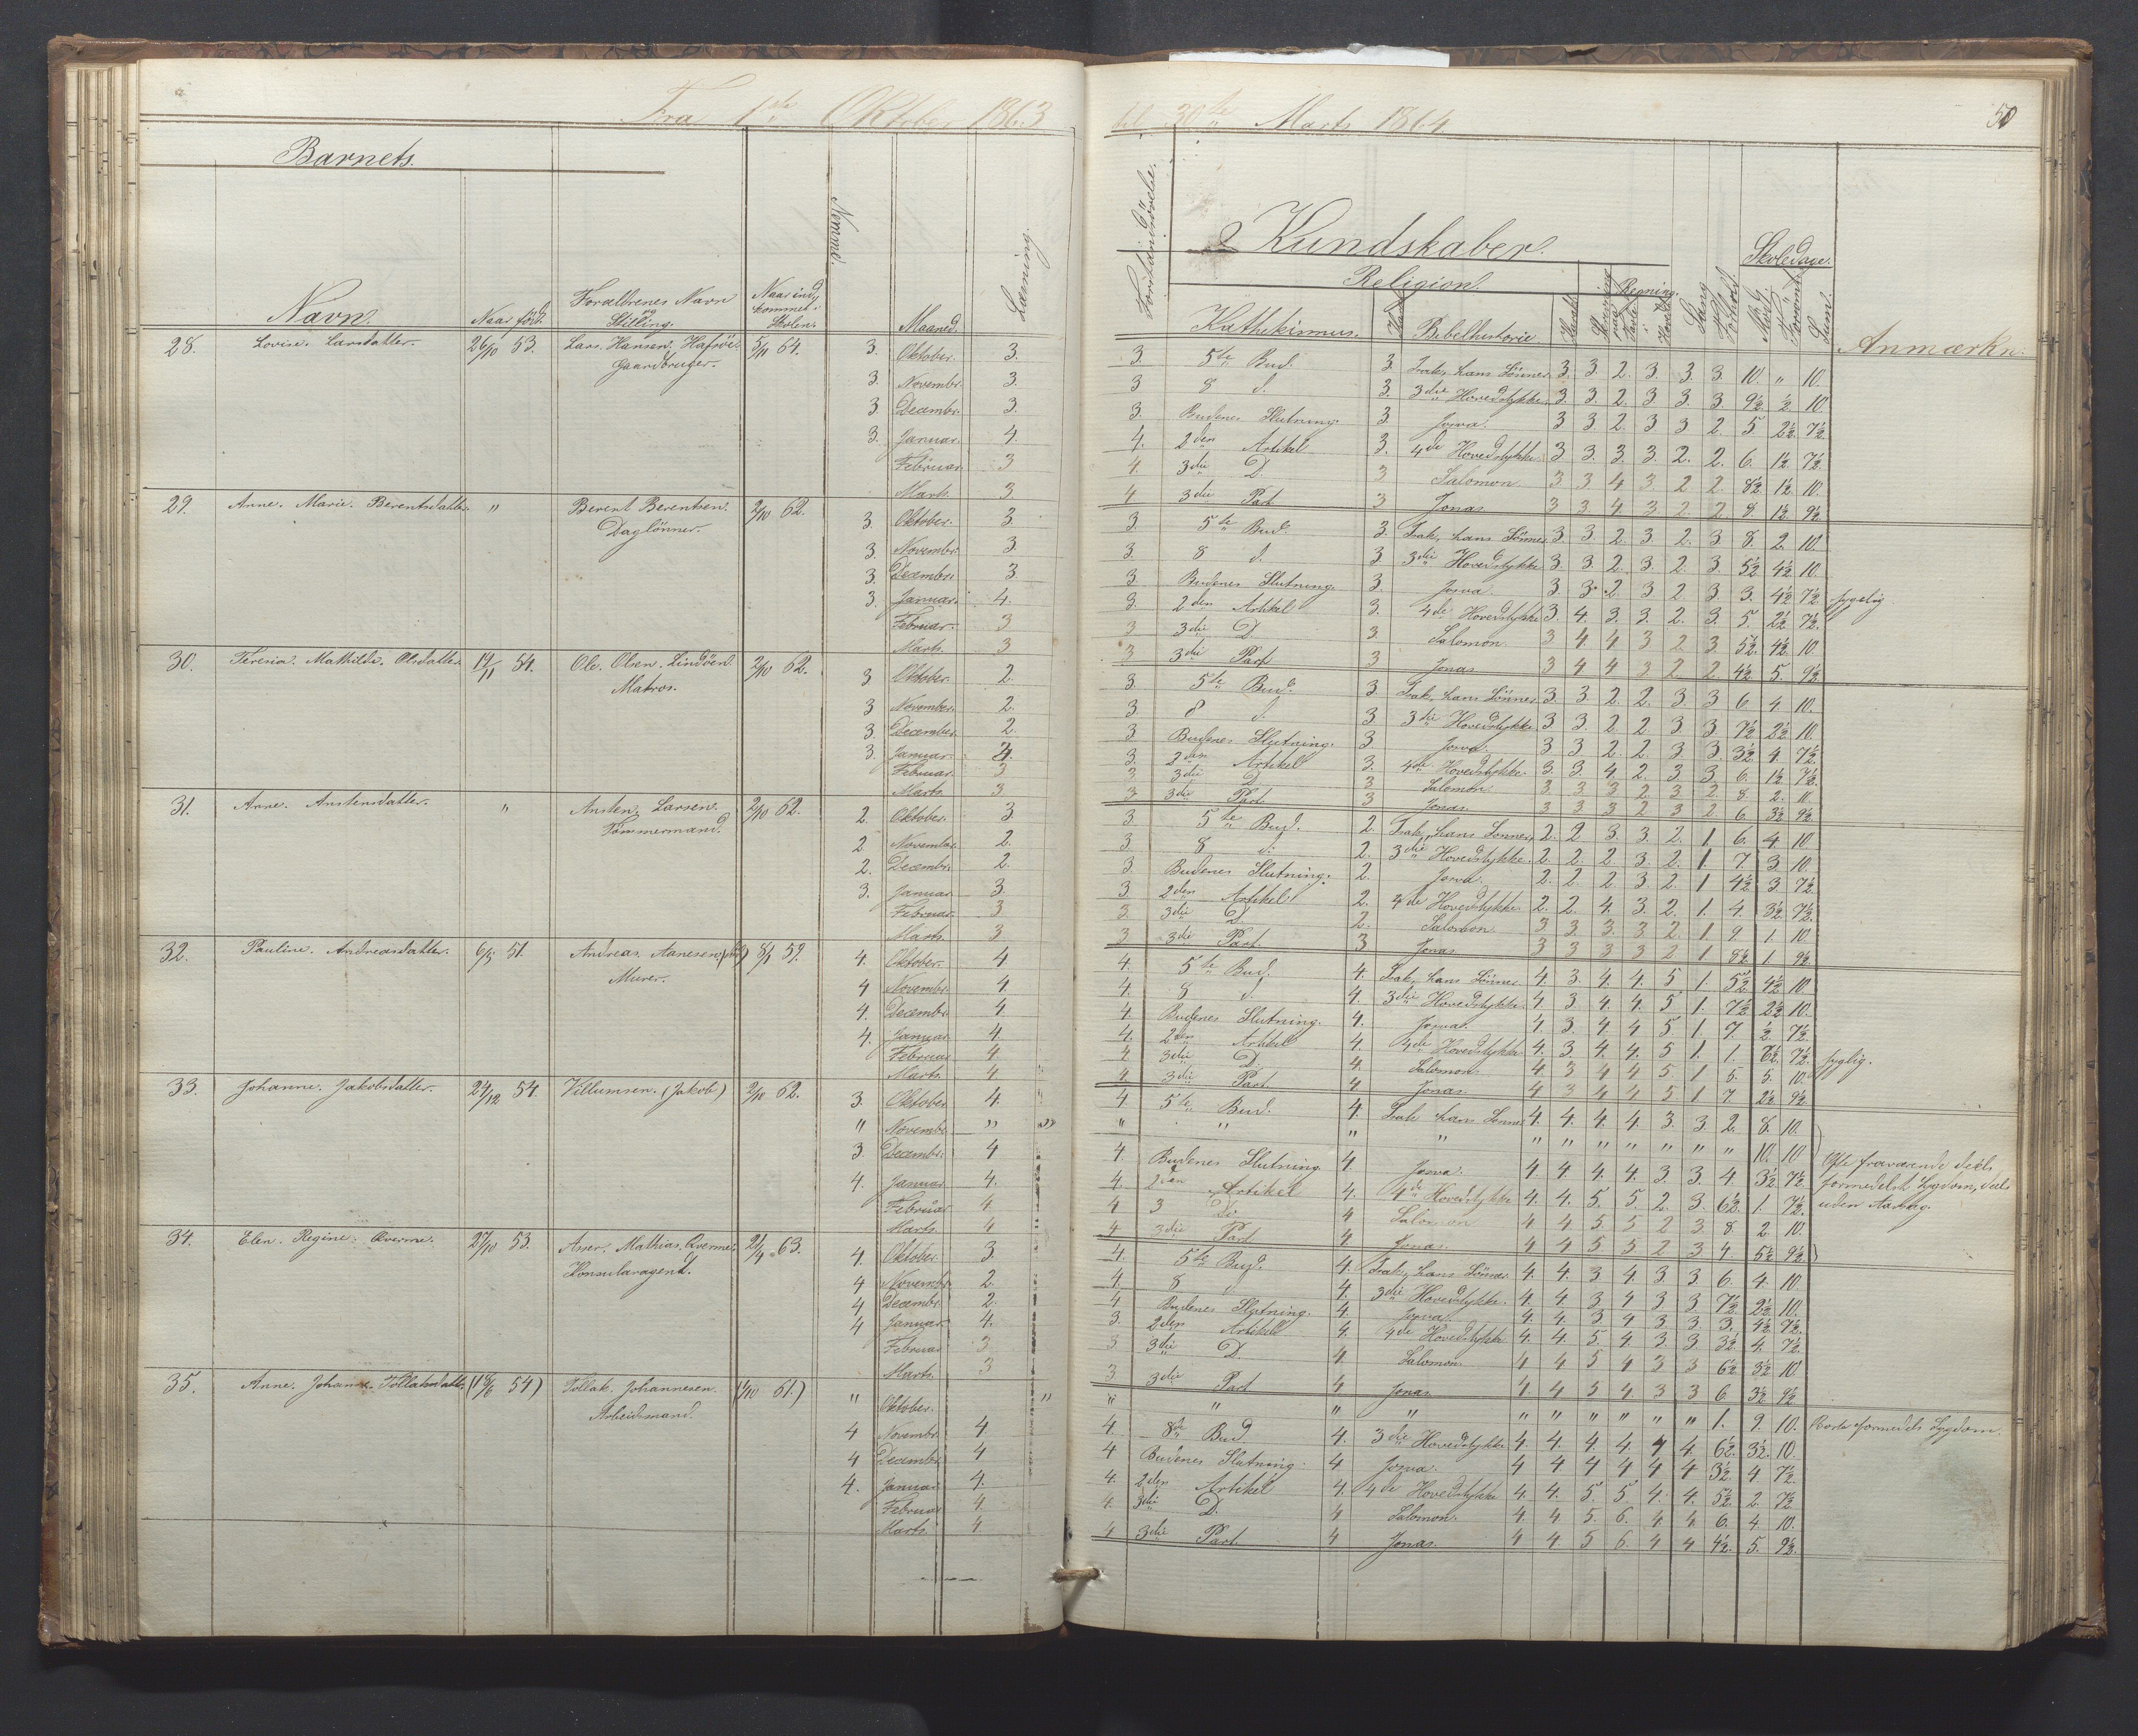 Fra 1ste Oktober 1863
Barnets.
Navn. Naar född. Forældrenes Navn og Stilling. Naar indkommet i Skolen. Nemme. Maaned. Læsning.
28. Lovise. Larsdatter. 26/10 53. Lars. Hansen. Hafsöe. 5/11 61. 3. Oktober. 3.
Gaardbruger. 3. Novembr. 3.
3. Decembr. 3.
3. Januar. 4.
Februar. 3
Marts. 3
29. Anne. Marie. Berentsdatter. " Berent Berentsen. 2/10 62. 3. Oktober. 3.
Daglönner. 3. Novembr. 3
3. Decembr. 3
3. Januar. 4.
Februar. 3
Marts. 3
30. Teresia. Mathilde. Olsdatter. 19/11 54. Ole. Olsen. Lindöen. 2/10 62. 3 Oktober. 2.
Matros. 3 November. 2.
3. December. 2
3. Januar. 4.
Februar. 3
Marts. 3
31. Anne. Anstensdatter. " Ansten. Larsen. 2/10 62. 2. Oktober. 3.
Tömmermand. 2 November. 2.
2. Decembr. 2.
3. Januar. 3.
Februar. 3
Marts. 3
32. Pauline. Andreasdatter. 6/5 51. Andreas. Aanesen. 8/1 59. 4. Oktober. 4
Murer. 4 Novembr. 4.
4. Decembr. 4
4. Januar. 4.
Februar. 4.
Marts. 4
33. Johanne. Jakobsdatter. 24/12 54. Villumsen. (Jakob) 2/10 62. 3. Oktober 4.
" Novembr. "
3. Decembr. 4
4. Januar. 4.
Februar. 4
Marts. 4
34. Elen. Regine. Qverme. 27/10 53. Asser. Mathias. Qverme. 21/4 63. 4. Oktober. 3.
Konsularagent. 4 Novembr. 2.
4 Decembr. 2.
4 Januar. 4.
Februar. 3
Marts. 3
35. Anne. Johanne. Tollaksdatter. 54) Tollak. Johannesen. (1/10 61.) " Oktober. "
Arbeidsmand. 4 Novembr. 4.
4 Decembr. 4
4. Januar. 4.
Februar 4
Marts. 4
til 30te Marts 1864
50
Kundskaber.
Skoledage.
Religion. Regning.
Forstandsövelse. Kathekismus. Bibelhistorie Sang Forhold. Mödt. Forsömt. Sum. Anmærkn.
3. 5te Bud. 3. Isak, hans Sönner. 3. 3. 2. 3. 3. 3. 10. " 10.
3 8 d. 3. 3die Hovedstykke. 3. 3. 2. 3 3. 3. 9½ ½. 10
3. Budenes Slutning. 3. Josva. 3 3 2. 3 3 2. 5 2½. 7½.
4. 2den Artikel 3. 4de Hovedstykke 3 3. 3. 3. 2. 2. 6. 1½ 7½.
4. 3die D. 3 Salomon. 3 3 4 3 2 2. 8½ 1½. 10.
4 3die Part 3 Jonas. 3 3. 4 3 2. 2. 8 1½ 9½
3. 5te Bud. 3. Isak, hans Sönner. 3. 3. 2. 3. 2. 3. 8. 2. 10.
3. 8 d. 3 3die Hovedstykke 3. 3. 2. 3. 2. 3. 5½ 4½ 10.
3 Budenes Slutning. 3. Josva. 3. 3. 2. 3 2. 3 3. 4½ 7½. sygelig
3. 2den Artikel 3. 4de Hovedstykke 3. 4. 3. 3. 2. 3. 5. 2½. 7½.
3 3die D 3. Salomon. 3 4. 4 3 2. 3. 5½. 4½. 10.
3 3die Part 3 Jonas 3 4 4 3 2. 2. 4½ 5. 9½.
3. 5te Bud. 3. Isak, hans Sönner. 3. 3. 2 2. 3 3 6. 4. 10.
3 8 d. 3 3die Hovedstykke. 3 3. 2. 2. 3 3. 7½ 2½ 10.
3 Budenes Slutning. 3. Josva. 3 3 2. 2. 3 3. 3½ 4. 7½.
3. 2den Artikel 3. 4de Hovedstykke. 3. 3. 4. 2. 3 3 6. 1½ 7½.
3 3die D. 3 Salomon. 3 3. 3 2. 3 2. 8. 2. 10.
3 3die Part. 3 Jonas. 3 3 3 2 3 2 6 3½ 9½.
3. 5te Bud. 2. Isak, hans Sönner. 2. 2. 3. 3. 2. 1 6. 4 10.
3 8 d. 2. 3die Hovedstykke. 2. 2. 2. 3. 2. 1. 7 3 10.
3. Budenes Slutning. 2. Josva. 2. 2. 2. 3 2. 1 4½ 3. 7½.
3 2den Artikel 2. 4de Hovedstykke. 2. 2. 4. 3. 2. 1. 4. 3½ 7½.
3. 3die D. 2. Salomon. 3 3. 3. 3 2. 1. 9 1. 10.
3 3die Part. 3 Jonas. 3 3 3 3 2 1 8½ 1 9½
4. 5te Bud. 4. Isak, hans Sönner. 4. 3. 4. 4. 5. 1. 5½. 4½ 10.
4. 8 d. 4. 3die Hovedstykke. 4 3. 4. 4. 5 1. 7½ 2½ 10.
4. Budenes Slutning. 4. Josva. 4. 3. 4. 4 5 1. 7. ½. 7½.
4. 2den Artikel 4. 4de Hovedstykke. 4. 3. 4. 4. 5 1. 1. 6½. 7½. syglig.
4 3die D. 4. Salomon. 4. 3 4 4 5. 1 5. 5. 10.
4 3die Part 4 Jonas. 4 3 4 4 5 1 7 2½ 9½.
4 5te Bud. 4. Isak hans Sönner 4. 4. 4. 4. 3. 3. 2. 8. 10.
" " " " " " " " " " " 10. 10
4 Budenes Slutning. 4 Josva. 4 4 4. 4. 3. 3. 4. 3½. 7½ Ofte fraværende deels
4. 2den Artikel 4. 4de Hovedstykke 4. 4. 5. 5. 2. 3. 6½. 1. 7½. formedelst Sygdom, deels
4 3 Di. 4 Salomon 4 4 5 5 2 3 8. 2. 10. uden Aarsag.
4 3die Part 4 Jonas. 4 4 5 5. 2 3 4. 5½ 9½
4. 5te Bud. 4. Isak, hans Sönner. 4. 4. 3 4. 3 3 6. 4. 10.
4. 8 d 4. 3die Hovedstykke. 4. 4 3 4 3 3. 7½ 2½. 10.
4 Budenes Slutning. 4. Josva. 4 4. 3 4 3. 3. 3. 4½ 7½.
3. 2den Artikel 4. 4de Hovedstykke 4. 4. 5. 4. 3 3 3½ 4. 7½
3 3die D. 4. Salomon. 4 4 5 4 3 3 6½ 3½ 10.
3 3die Part 4 Jonas 4. 4 5 4. 3 3 6. 3½ 9½
" " " " " " " " " " 1. 9. 10. Borte formedels Sygdom.
4. 8de Bud 4. 3die Hovedstykke 4. 4. 4. 4. 4 4. 6½. 3½. 10.
4 Budenes Slutning. 4 Josva. 4 4 4 4 4 4 3½. 4 7½
4. 2den Artikel 4. 4de Hovedstykke 4 4. 5. 5. 4. 4. 5½ 2. 7½
4. 3die D. 4 Salomon. 4 4 5. 6. 4 4 6. 4 10.
4 3die Part 4 Jonas. 4 4. 5 6. 4 4 4½. 5. 9½.